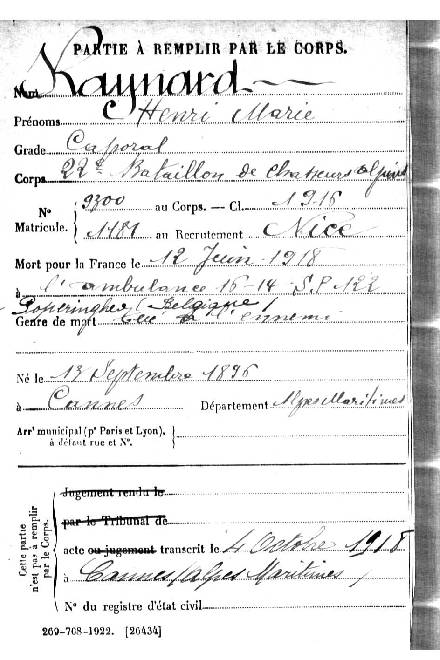 PARTIE À REMPLIR PAR LE CORPS.
Nom Raynard
Prénoms Henri Marie
Grade Caporal
Corps 22e Bataillon de Chasseurs alpins
N° 9300 au Corps. — Cl. 1916
Matricule. 1481 au Recrutement Nice
Mort pour la France le 12 Juin 1918
à l'ambulance 16-14 S.P. 122
Poperinghe (Belgique)
Genre de mort tué à l'ennemi
Né le 13 Septembre 1896
à Cannes Département Alpes Maritimes
Arrt municipal (pr Paris et Lyon),
à défaut rue et N°.
Cette partie
n'est pas à remplir
par le Corps.
Jugement rendu le
par le Tribunal de
acte ou jugement transcrit le 4 Octobre 1918
à Cannes (Alpes Maritimes)
N° du registre d'état civil
269-708-1922. [26434]